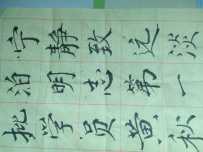 宁静致远淡
泊明志第一
批学员黄秋